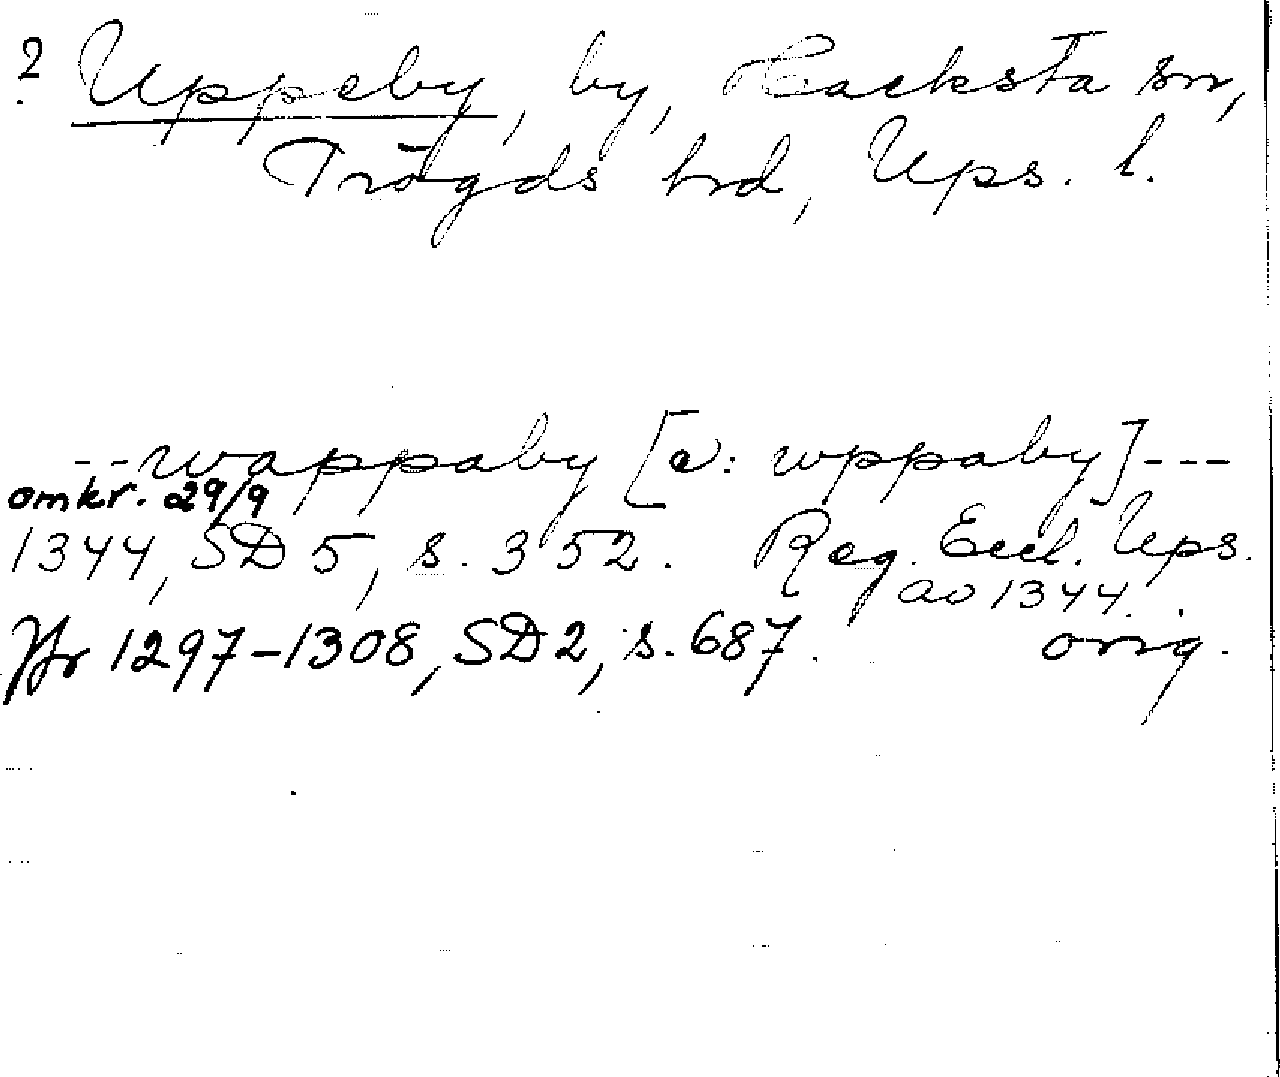 ? Uppeby, by, Hacksta sn,
Trögds hrd, Ups. l.
--wappaby [ɔ: wppaby]---
omkr. 29/9
1344, SD 5, s. 352. Reg. Eccl. Ups.
ao 1344.
Jfr 1297-1308, SD 2, s. 687. orig.